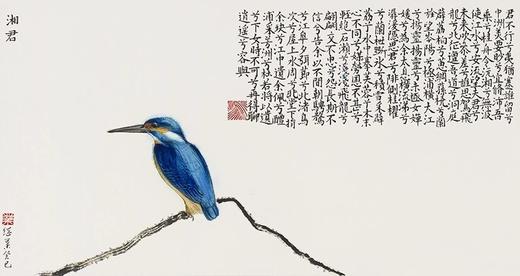 君不行兮夷猶蹇誰留兮
中洲美要眇兮宜修沛吾
乘兮桂舟令沅湘兮無波
使江水兮安流望夫君兮
未來吹參差兮誰思駕飛
龍兮北征邅吾道兮洞庭
薜荔柏兮蕙綢蓀橈兮蘭
旌望涔陽兮極浦橫大江
兮揚靈揚靈兮未極女嬋
媛兮為余太息橫流涕兮
潺湲隱思君兮陫側桂櫂
兮蘭枻斲冰兮積雪采薜
荔兮水中搴芙蓉兮木末
心不同兮媒勞恩不甚兮
輕絕石瀨兮淺淺飛龍兮
翩翩交不忠兮怨長期不
信兮告余以不閒朝騁騖
兮江皋夕弭節兮北渚鳥
次兮屋上水周兮堂下捐
余玦兮江中遺余佩兮醴
浦采芳洲兮杜若將以遺
兮下女時不可兮再得聊
逍遙兮容與
湘君
癸巳